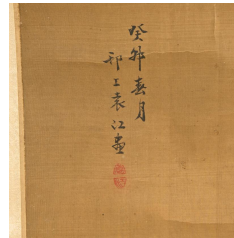 癸卯春月
邗工袁江畫